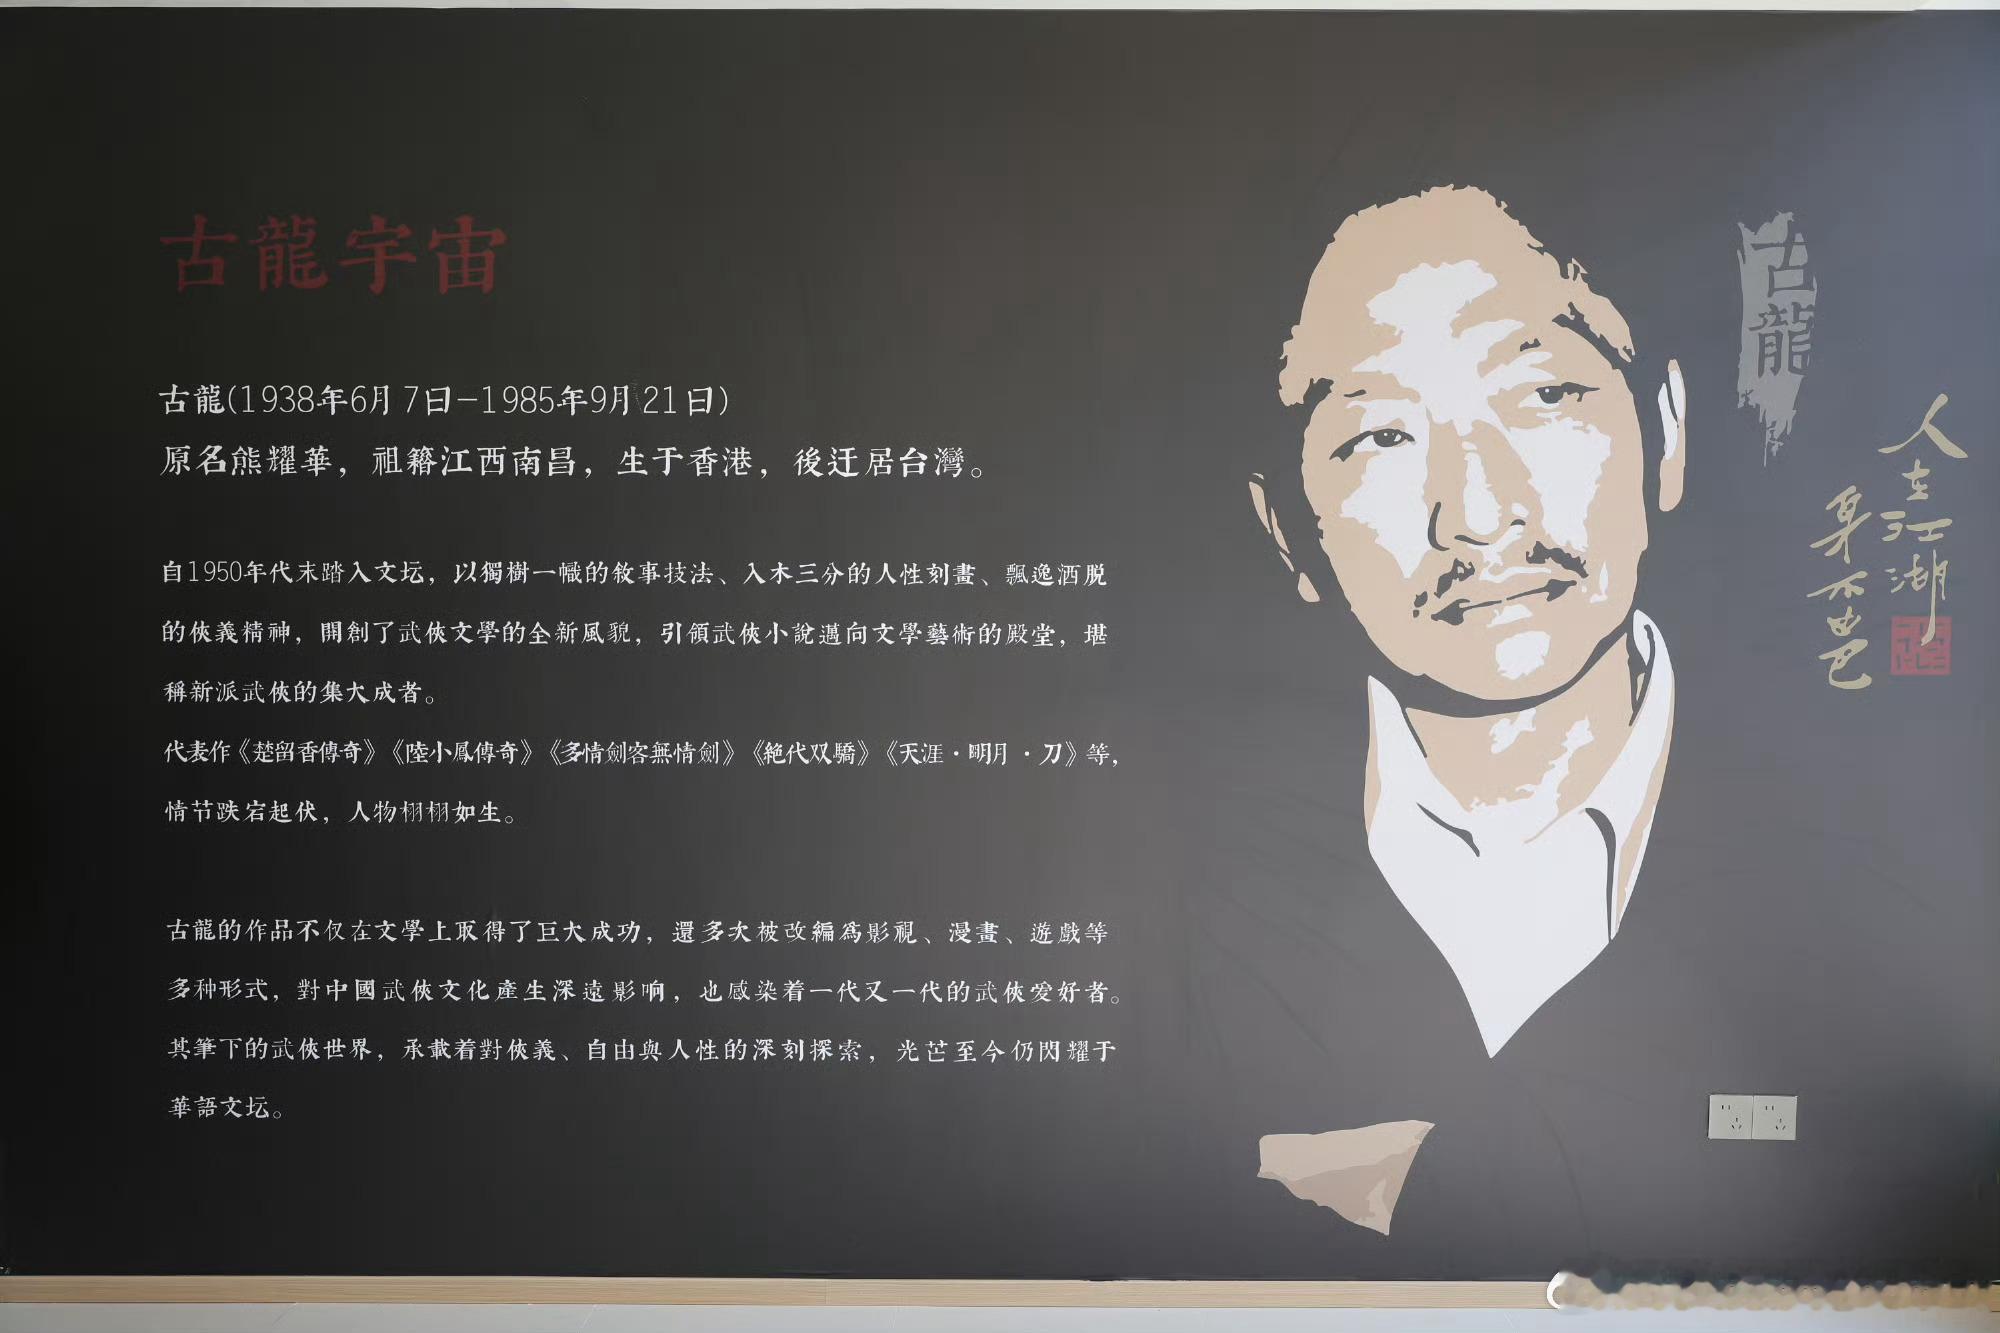 古龍宇宙
古龍(1938年6月7日-1985年9月21日)
原名熊耀華，祖籍江西南昌，生于香港，後迁居台灣。
自1950年代末踏入文坛，以獨樹一幟的敘事技法、入木三分的人性刻畫、飄逸洒脱
的俠義精神，開創了武俠文學的全新風貌，引領武俠小說邁向文學藝術的殿堂，堪
稱新派武俠的集大成者。
代表作《楚留香傳奇》《陸小鳳傳奇》《多情劍客無情劍》《絕代双驕》《天涯·明月·刀》等，
情节跌宕起伏，人物栩栩如生。
古龍的作品不仅在文學上取得了巨大成功，還多次被改編爲影視、漫畫、遊戲等
多种形式，對中國武俠文化產生深遠影响，也感染着一代又一代的武俠爱好者。
其筆下的武俠世界，承載着對俠義、自由與人性的深刻探索，光芒至今仍閃耀于
華語文坛。
古龍
人在江湖
身不由己